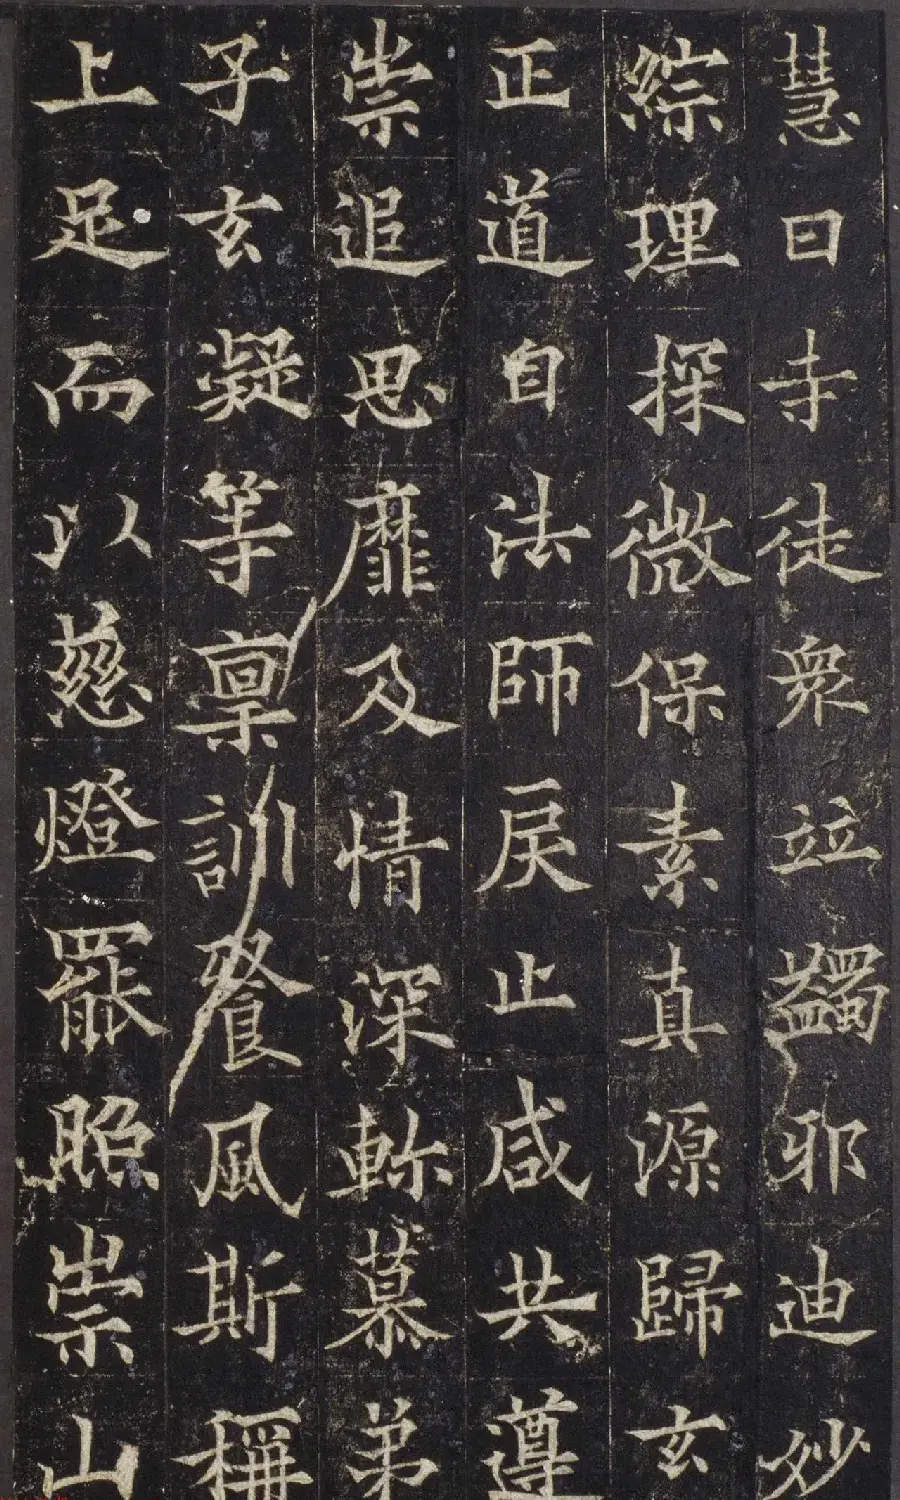 慧日寺徒衆竝蠲耶迪妙
綜理探微保素真源歸玄
正道自法師戾止咸共遵
崇追思靡及情深軫慕弟
子玄凝等稟訓餐風斯稱
上足而以慈燈罷照崇山